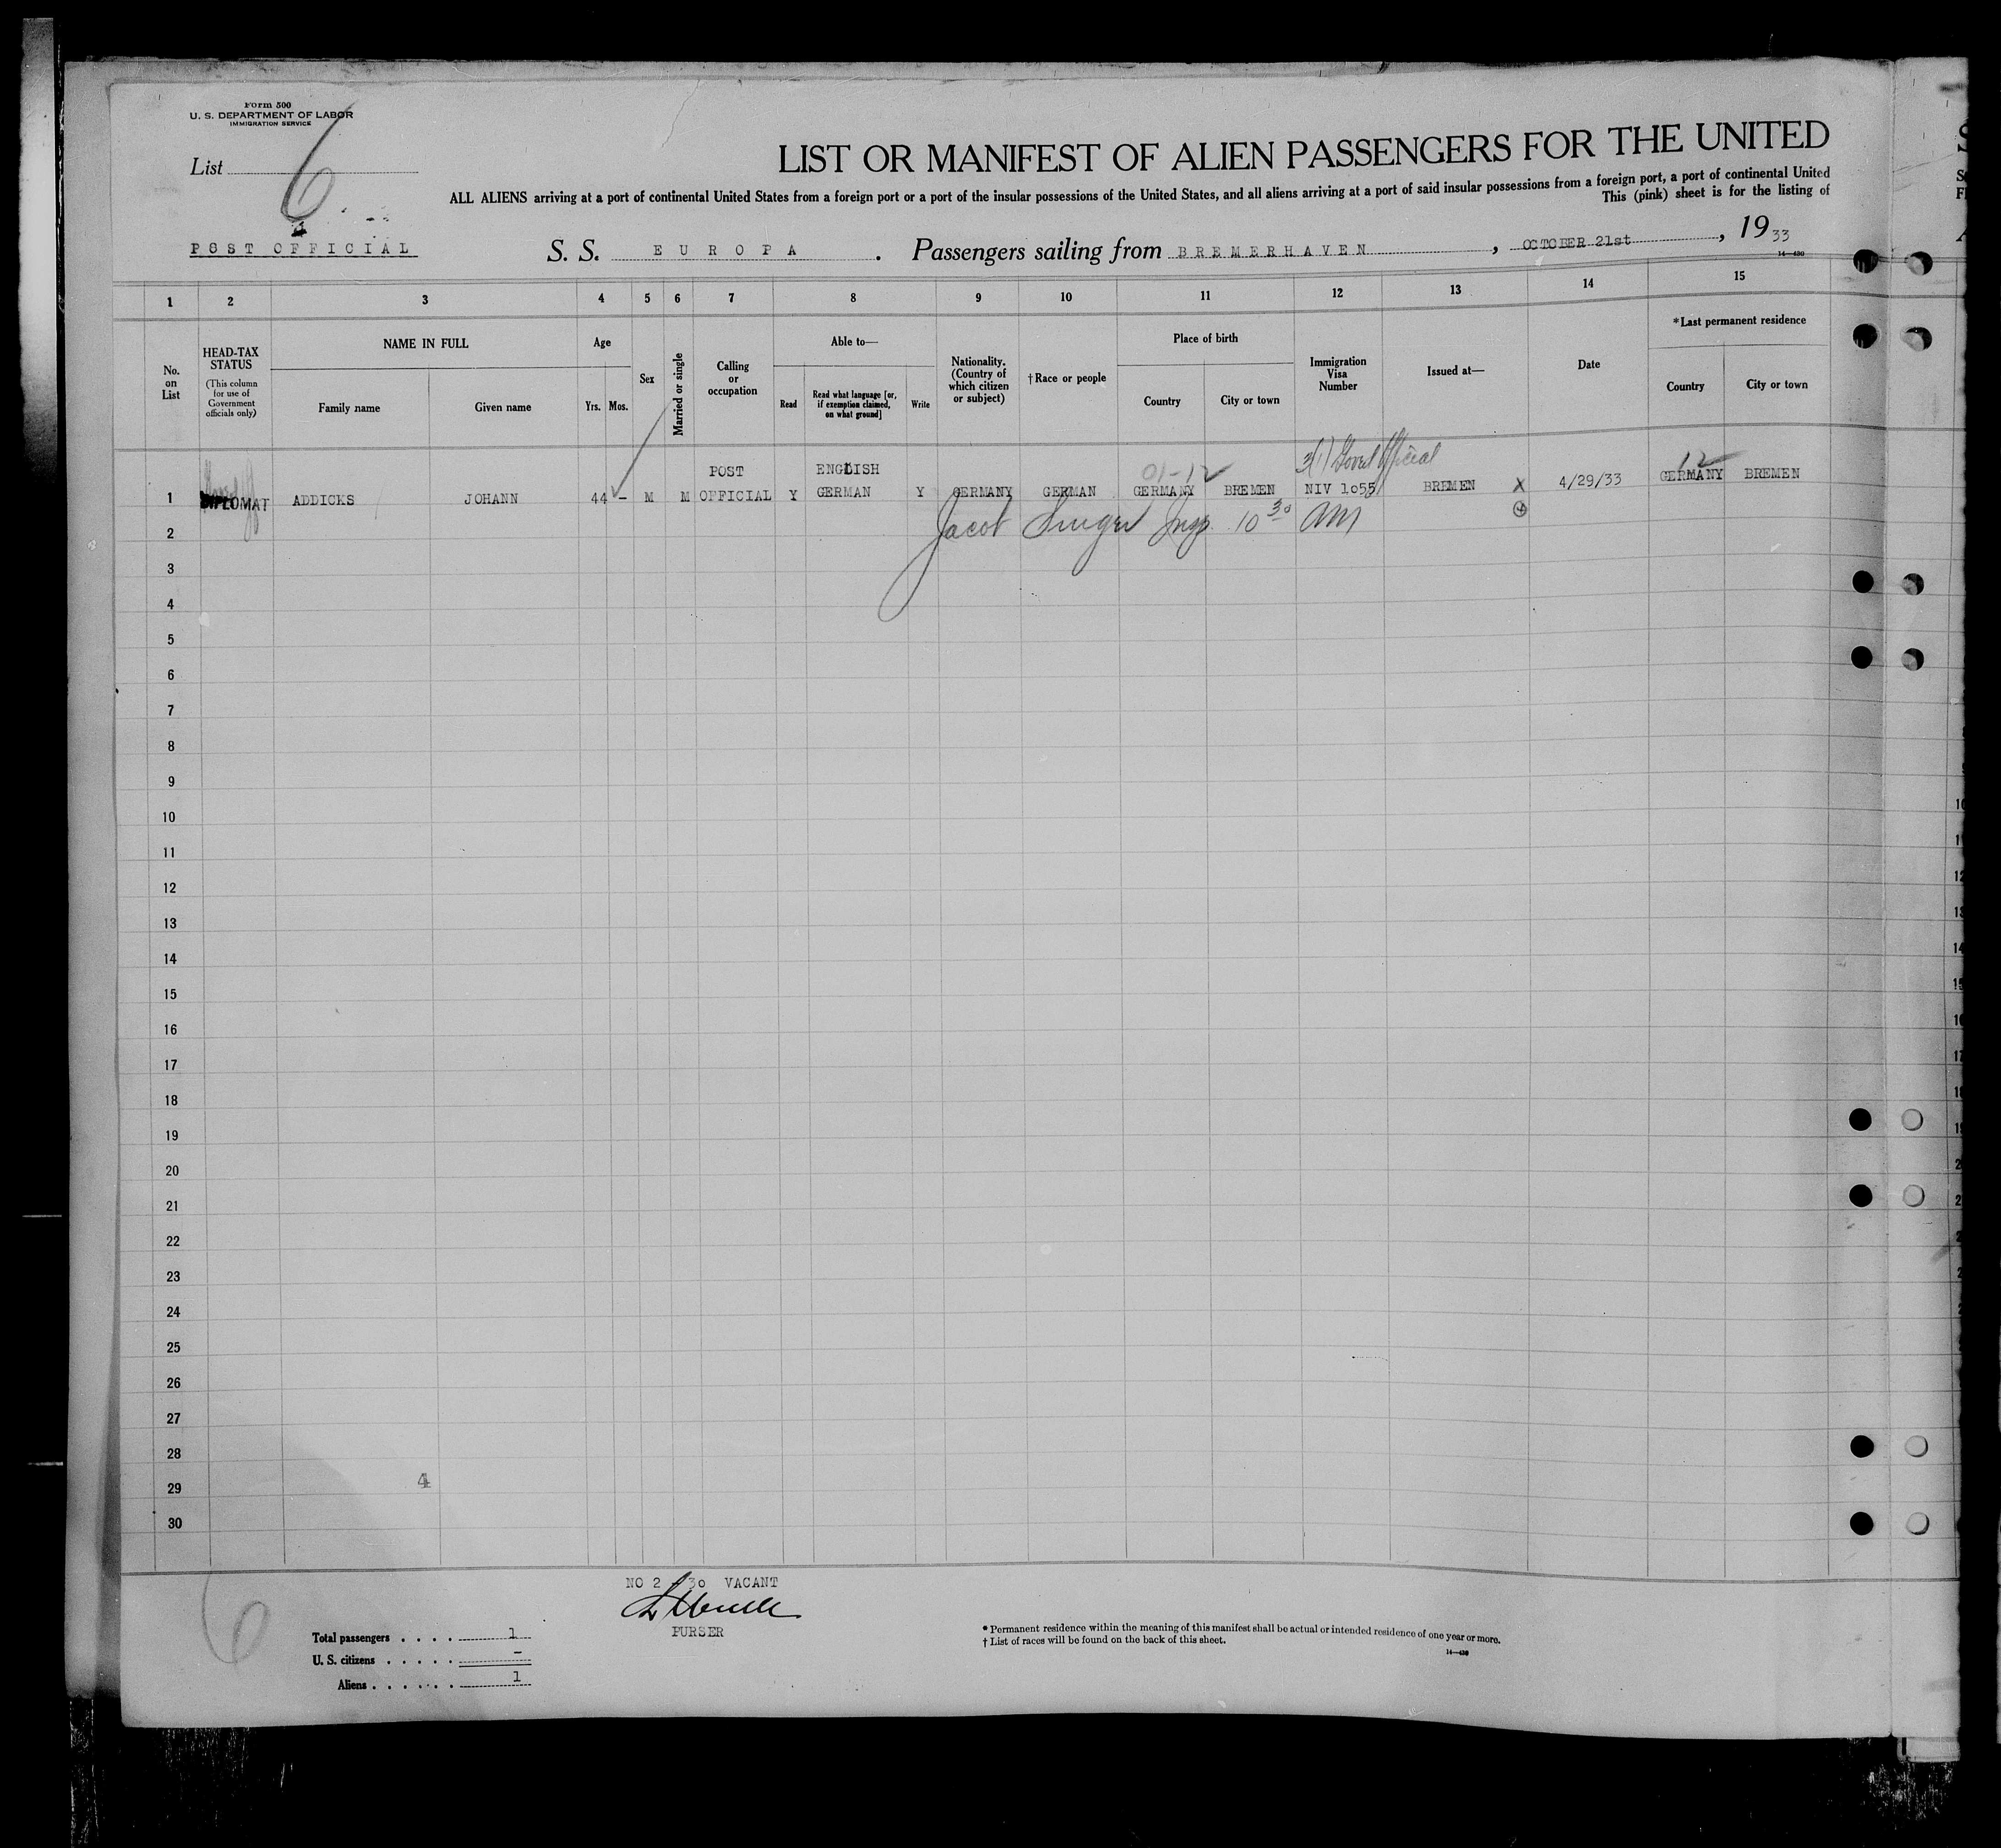 Form 500
U. S. DEPARTMENT OF LABOR
IMMIGRATION SERVICE
List 6
LIST OR MANIFEST OF ALIEN PASSENGERS FOR THE UNITED
ALL ALIENS arriving at a port of continental United States from a foreign port or a port of the insular possessions of the United States, and all aliens arriving at a port of said insular possessions from a foreign port, a port of continental United
This (pink) sheet is for the listing of
POST OFFICIAL S. S. EUROPA. Passengers sailing from BREMERHAVEN, OCTOBER 21st, 1933
14—430
1 2 3 4 5 6 7 8 9 10 11 12 13 14 15
No. on List
HEAD-TAX STATUS (This column for use of Government officials only)
NAME IN FULL
Family name Given name
Age
Yrs. Mos.
Sex
Married or single
Calling or occupation
Able to—
Read
Read what language [or, if exemption claimed, on what ground]
Write
Nationality. (Country of which citizen or subject)
†Race or people
Place of birth
Country City or town
Immigration Visa Number
Issued at—
Date
*Last permanent residence
Country City or town
01-12 3(1) Govnl Official 12
POST ENGLISH
1 DIPLOMAT ADDICKS JOHANN 44 - M M OFFICIAL Y GERMAN Y GERMANY GERMAN GERMANY BREMEN NIV 1055 BREMEN X 4/29/33 GERMANY BREMEN
2 Jacob Singer Insp. 10 30 AM
3
4
5
6
7
8
9
10
11
12
13
14
15
16
17
18
19
20
21
22
23
24
25
26
27
28
29 4
30
NO 2 - 30 VACANT
PURSER
6
Total passengers . . . . 1
U. S. citizens . . . . . -
Aliens . . . . . . 1
* Permanent residence within the meaning of this manifest shall be actual or intended residence of one year or more.
† List of races will be found on the back of this sheet.
14—430